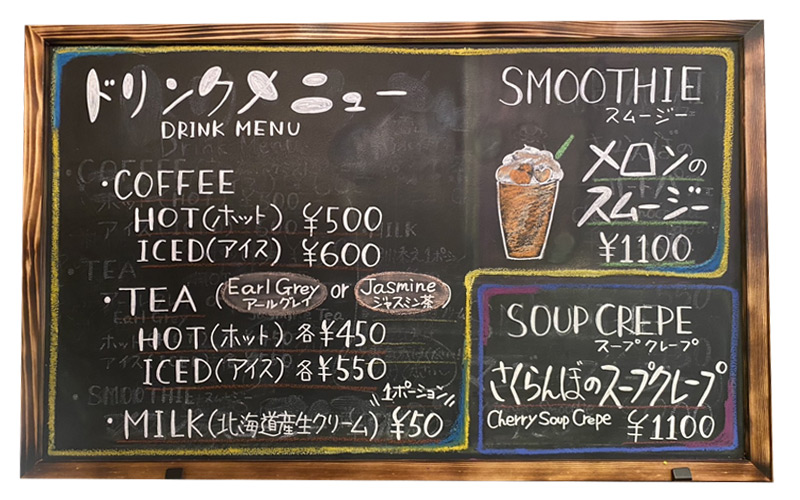 ドリンクメニュー
DRINK MENU
・COFFEE
HOT(ホット) ¥500
ICED(アイス) ¥600
・TEA (Earl Grey アールグレイ or Jasmine ジャスミン茶)
HOT(ホット) 各¥450
ICED(アイス) 各¥550
・MILK(北海道産生クリーム) ¥50
\\1ポーション//
SMOOTHIE
スムージー
メロンの
スムージー
¥1100
SOUP CREPE
スープクレープ
さくらんぼのスープクレープ
Cherry Soup Crepe ¥1100